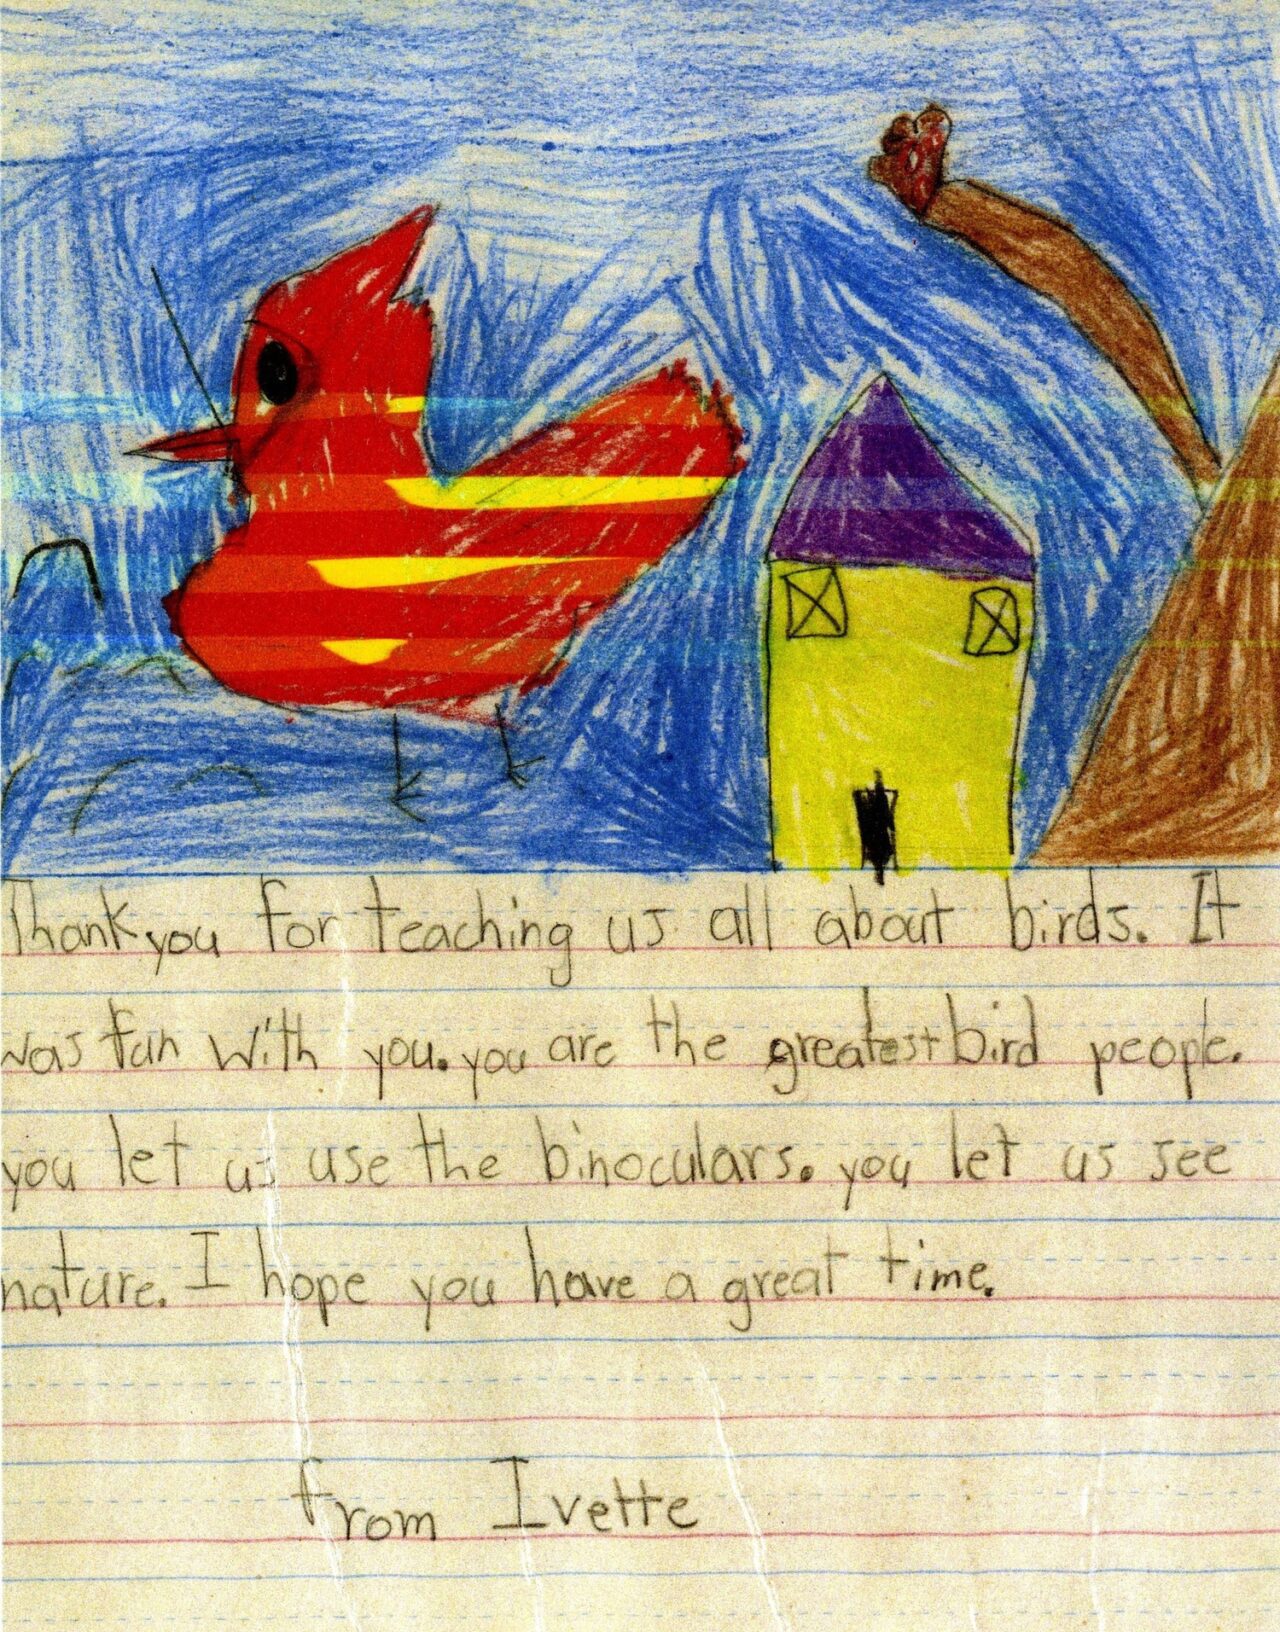 Thank you for teaching us all about birds. It
was fun with you. you are the greatest bird people.
you let us use the binoculars. you let us see
nature. I hope you have a great time.
from Ivette